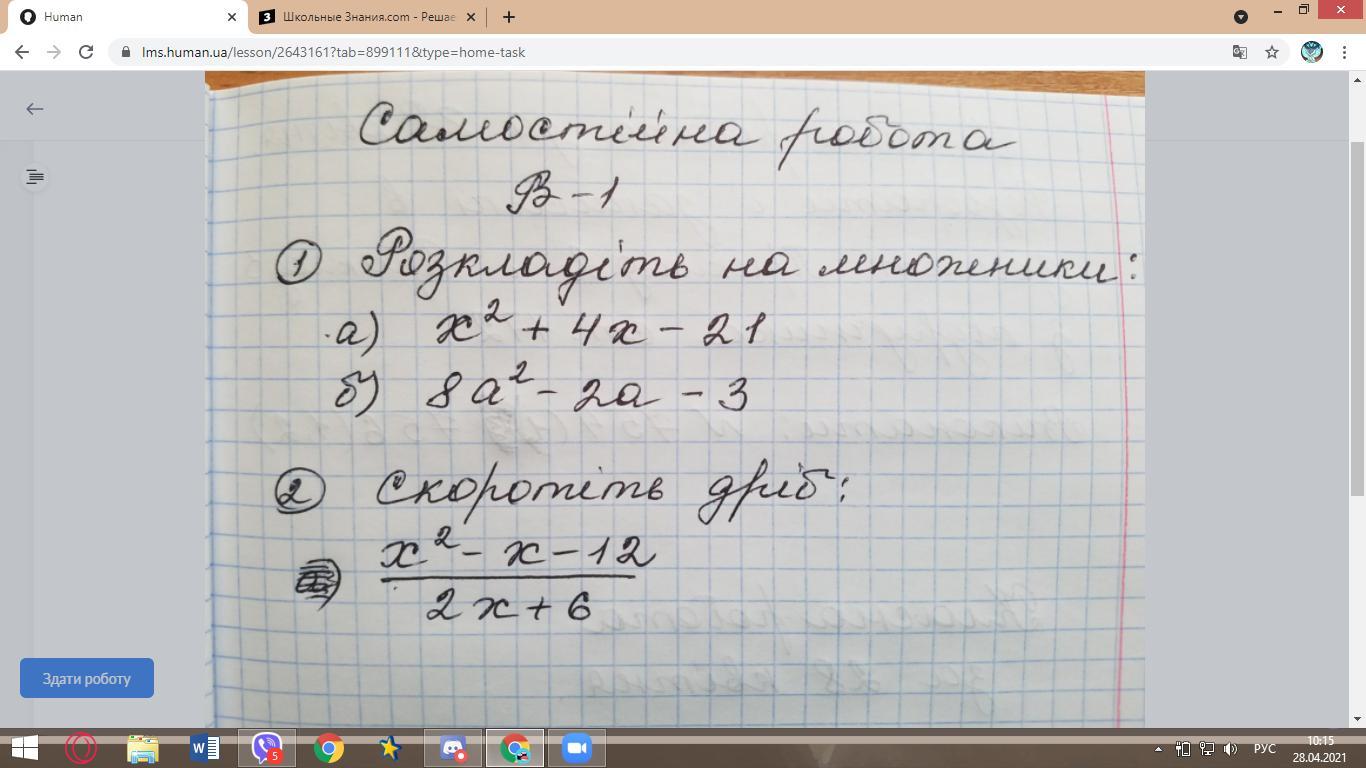 Human
Школьные Знания.com - Решае
lms.human.ua/lesson/2643161?tab=899111&type=home-task
Самостійна робота
В-1
1 Розкладіть на множники:
а) x² + 4x - 21
б) 8a² - 2a - 3
2 Скоротіть дріб:
x² - x - 12
2x + 6
Здати роботу
5
РУС
10:15
28.04.2021